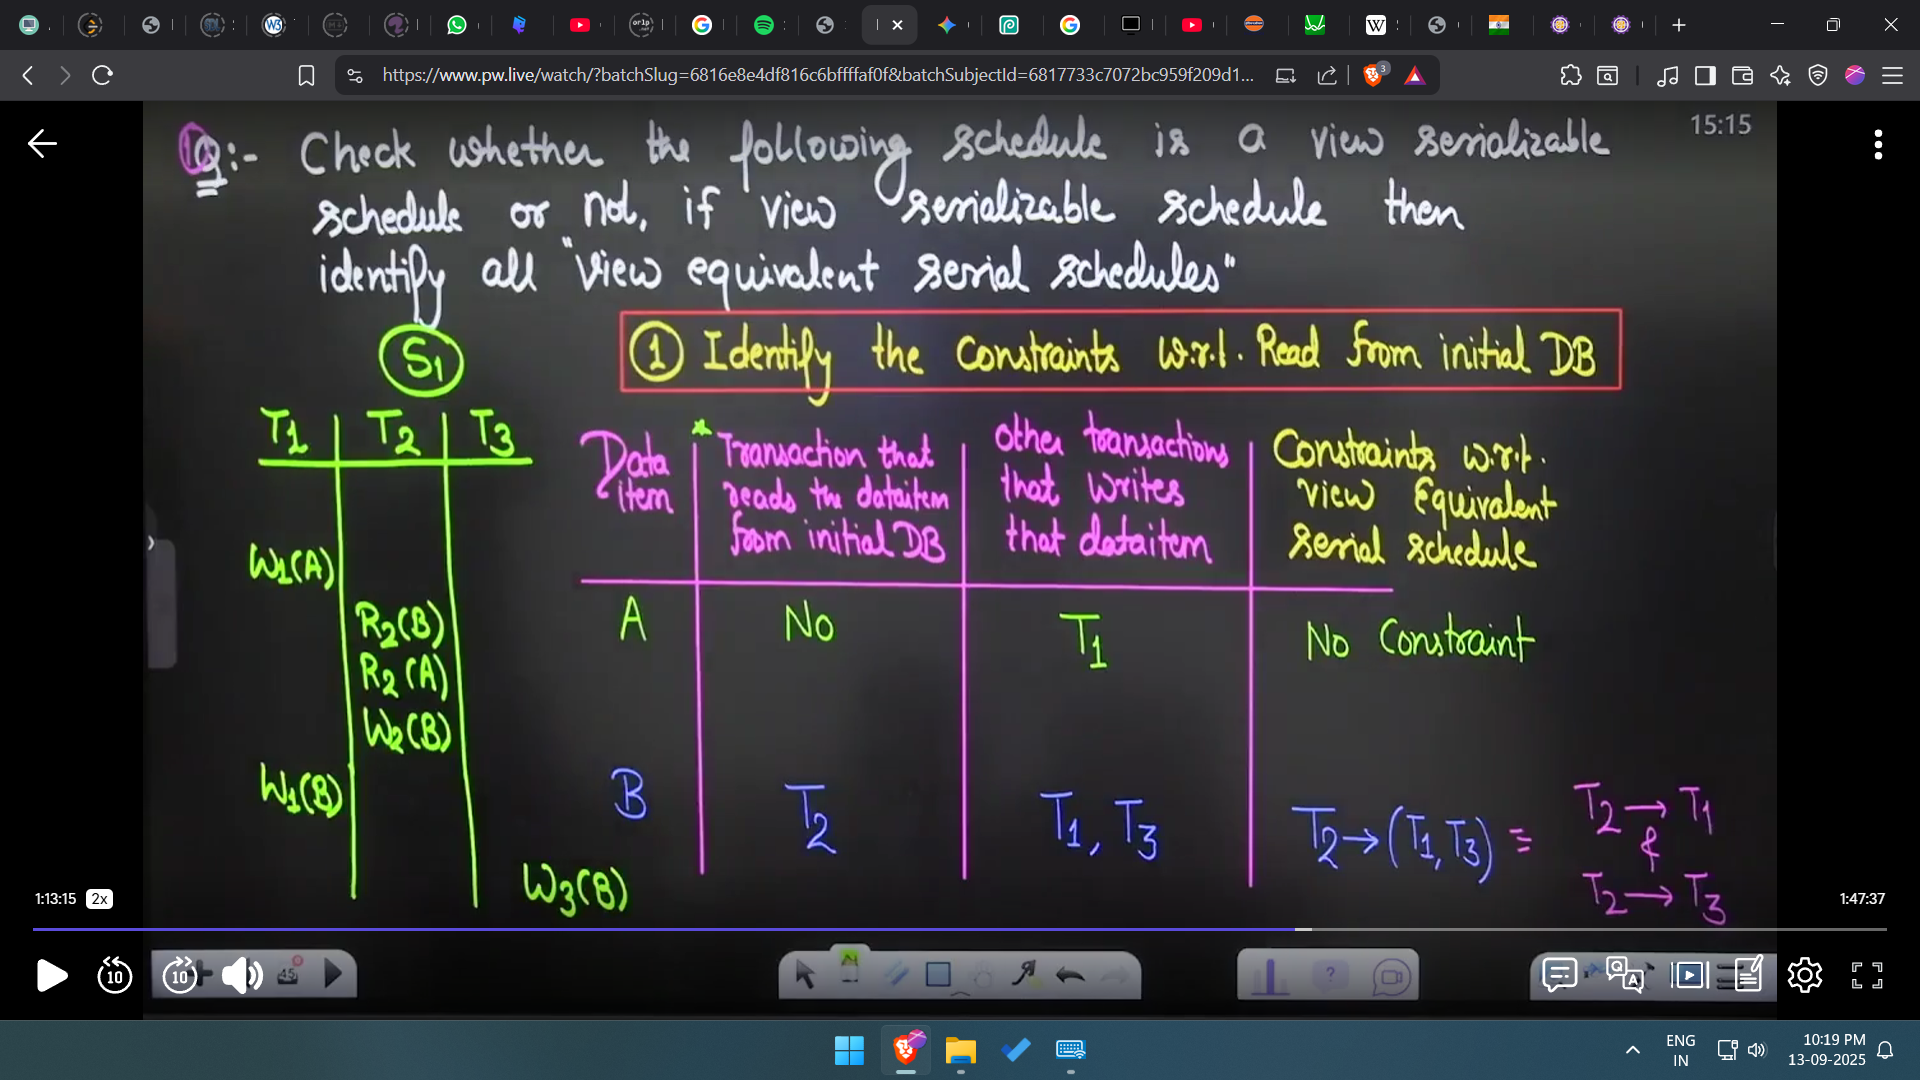 https://www.pw.live/watch/?batchSlug=6816e8e4df816c6bffffaf0f&batchSubjectId=6817733c7072bc959f209d1...
3
15:15
Q:- Check whether the following schedule is a view serializable
schedule or not, if view serializable schedule then
identify all "view equivalent serial schedules"
S1
① Identify the Constraints w.r.t. Read from initial DB
T1 T2 T3
W1(A)
R2(B)
R2(A)
W2(B)
W1(B)
W3(B)
Data item
Transaction that
reads the dataitem
from initial DB
Other transactions
that writes
that dataitem
Constraints w.r.t.
view Equivalent
serial schedule
A No T1 No Constraint
B T2 T1, T3 T2→(T1,T3) =
T2→T1
&
T2→T3
1:13:15 2x
1:47:37
10
10
45
ENG
IN
10:19 PM
13-09-2025